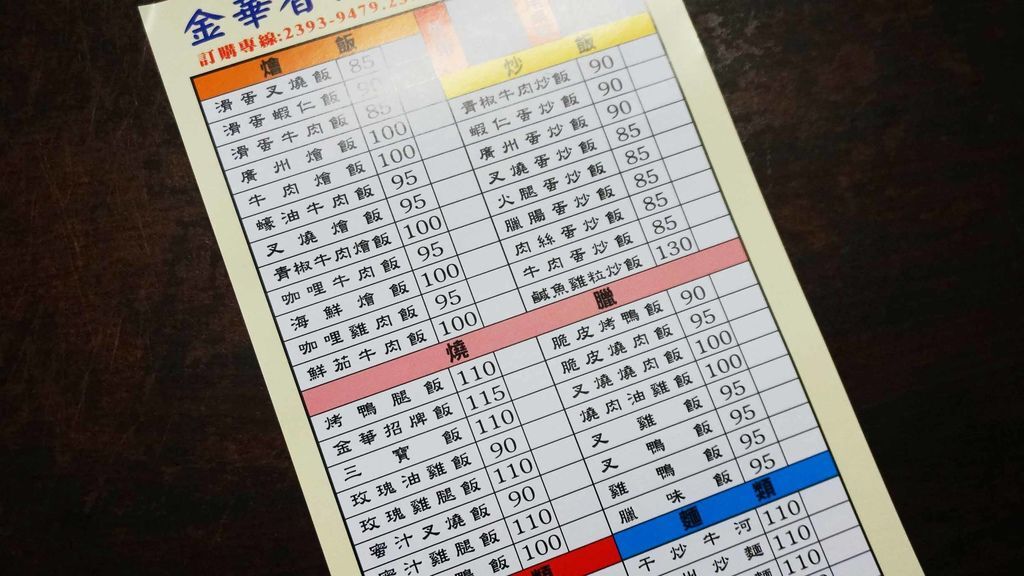 金華香
訂購專線:2393-9479.23
燴 飯
滑蛋叉燒飯 85
滑蛋蝦仁飯
滑蛋牛肉飯 85
廣州燴飯 100
牛肉燴飯 100
蠔油牛肉飯 95
叉燒燴飯 95
青椒牛肉燴飯 100
咖哩牛肉飯 95
海鮮燴飯 100
咖哩雞肉飯 95
鮮茄牛肉飯 100
炒 飯
青椒牛肉炒飯 90
蝦仁蛋炒飯 90
廣州蛋炒飯 90
叉燒蛋炒飯 85
火腿蛋炒飯 85
臘腸蛋炒飯 85
肉絲蛋炒飯 85
牛肉蛋炒飯 85
鹹魚雞粒炒飯 130
燒 臘
烤鴨腿飯 110
金華招牌飯 115
三寶飯 110
玫瑰油雞飯 90
玫瑰雞腿飯 110
蜜汁叉燒飯 90
蜜汁雞腿飯 110
鴨飯 100
脆皮烤鴨飯 90
脆皮燒肉飯 95
叉燒燒肉飯 100
燒肉油雞飯 100
叉雞飯 95
叉鴨飯 95
雞鴨飯 95
臘味飯 95
類
麵 類
干炒牛河 110
州炒麵 110
麵 110